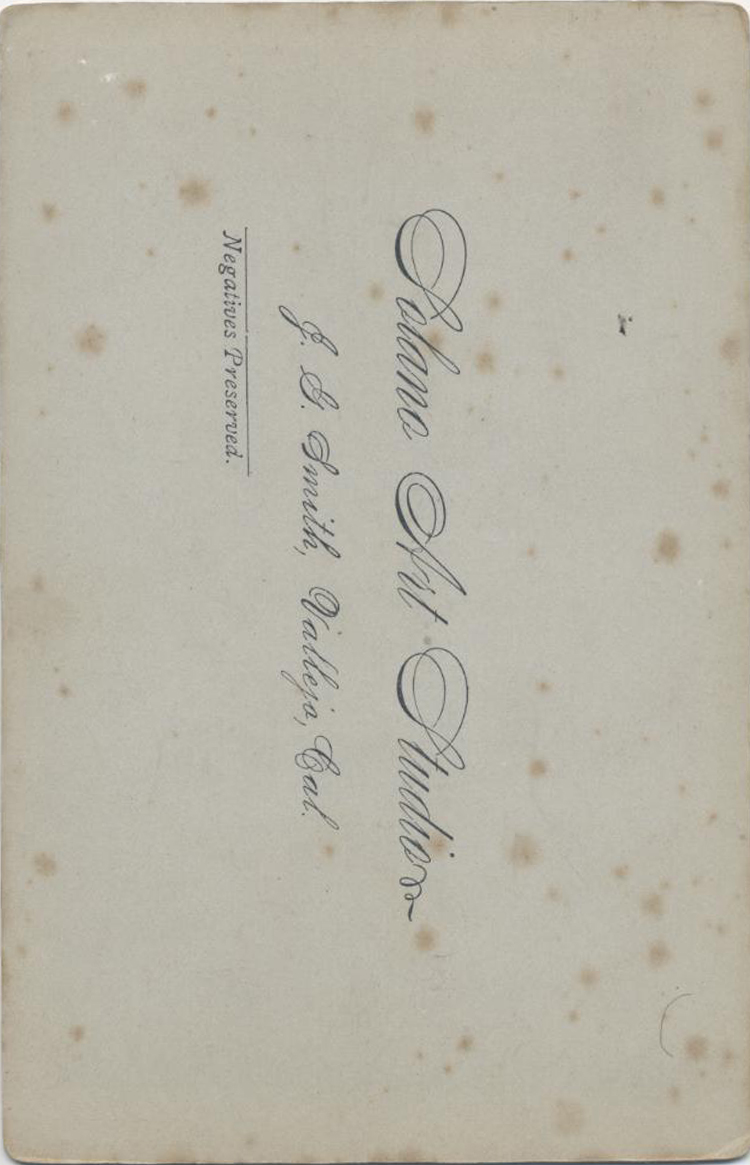 Solano Art Studio
J. G. Smith, Vallejo, Cal.
Negatives Preserved.